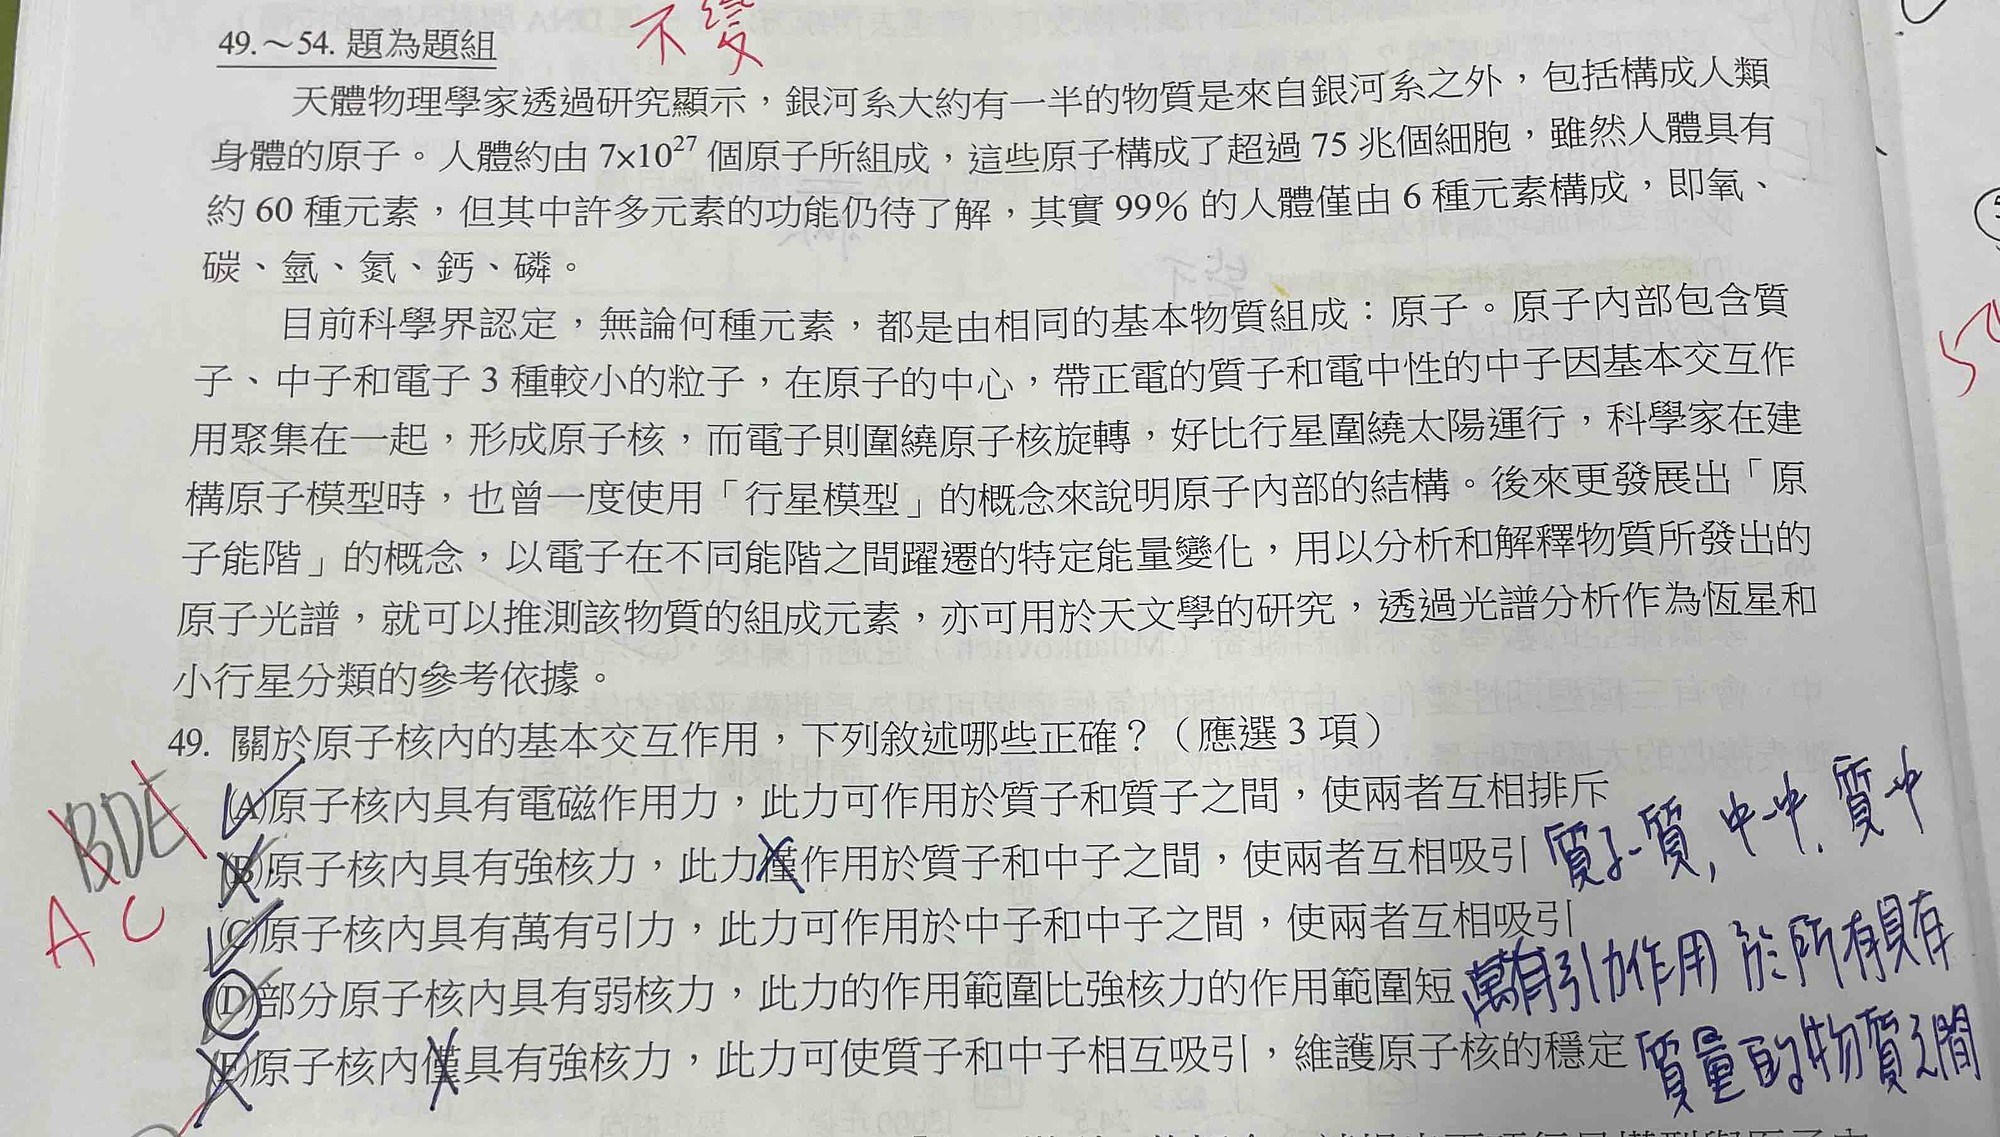 不變
49.～54. 題為題組
天體物理學家透過研究顯示，銀河系大約有一半的物質是來自銀河系之外，包括構成人類
身體的原子。人體約由 7×10²⁷ 個原子所組成，這些原子構成了超過 75 兆個細胞，雖然人體具有
約 60 種元素，但其中許多元素的功能仍待了解，其實 99% 的人體僅由 6 種元素構成，即氧、
碳、氫、氮、鈣、磷。
目前科學界認定，無論何種元素，都是由相同的基本物質組成：原子。原子內部包含質
子、中子和電子 3 種較小的粒子，在原子的中心，帶正電的質子和電中性的中子因基本交互作
用聚集在一起，形成原子核，而電子則圍繞原子核旋轉，好比行星圍繞太陽運行，科學家在建
構原子模型時，也曾一度使用「行星模型」的概念來說明原子內部的結構。後來更發展出「原
子能階」的概念，以電子在不同能階之間躍遷的特定能量變化，用以分析和解釋物質所發出的
原子光譜，就可以推測該物質的組成元素，亦可用於天文學的研究，透過光譜分析作為恆星和
小行星分類的參考依據。
49. 關於原子核內的基本交互作用，下列敘述哪些正確？（應選 3 項）
BDE
AC
(A)原子核內具有電磁作用力，此力可作用於質子和質子之間，使兩者互相排斥
(B)原子核內具有強核力，此力僅作用於質子和中子之間，使兩者互相吸引 質子-質, 中-中, 質-中
(C)原子核內具有萬有引力，此力可作用於中子和中子之間，使兩者互相吸引
萬有引力作用於所有具有
(D)部分原子核內具有弱核力，此力的作用範圍比強核力的作用範圍短
質量的物質之間
(E)原子核內僅具有強核力，此力可使質子和中子相互吸引，維護原子核的穩定